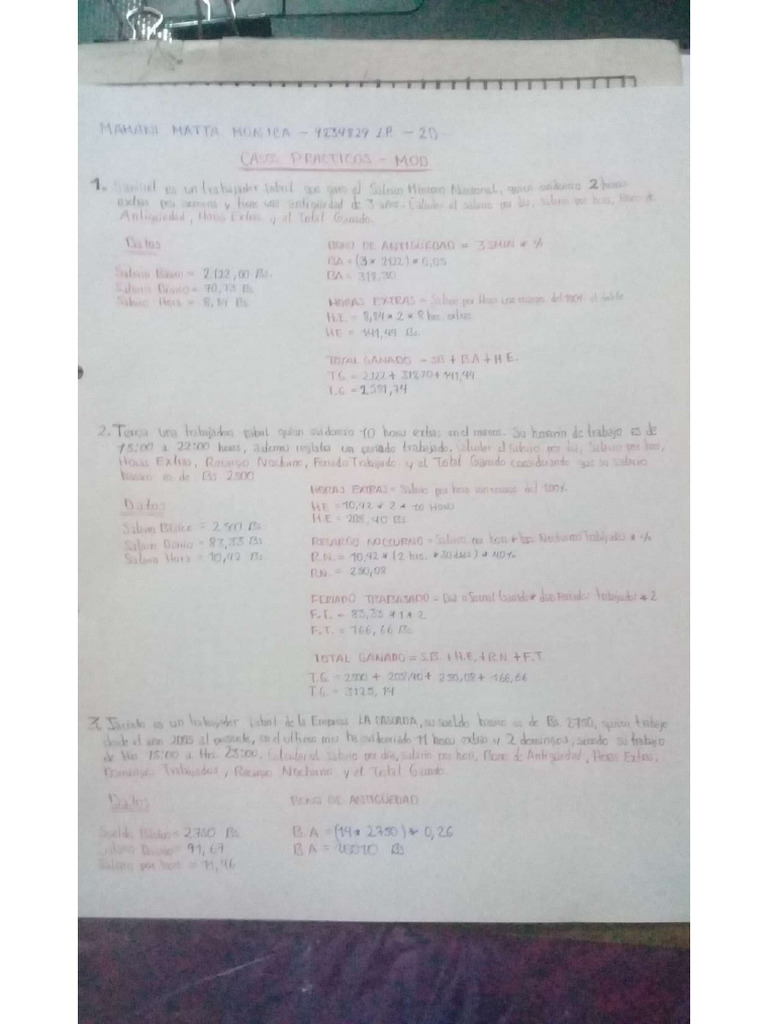 MAMANI MATTA MONICA - 4234829 LP. - 20
CASOS PRACTICOS - MOD
1. es un trabajador fabril que gana el Salario Mínimo Nacional, quien evidencia 2 horas
extras por semana y tiene una antigüedad de 3 años. Calcular el salario por día, salario por hora, Bono de
Antigüedad, Horas Extras y el Total Ganado.
Datos
Salario Básico = 2.122,00 Bs.
Salario Diario = 70,73 Bs
Salario Hora = 8,84 Bs
BONO DE ANTIGÜEDAD = 3 SMIN * %
BA = (3 * 2122) * 0,05
BA = 318,30
HORAS EXTRAS = Salario por Hora del 100% el doble
H.E. = 8,84 * 2 * 8 hrs. extras
HE = 141,44 Bs.
TOTAL GANADO = SB + BA + H.E.
T.G = 2122 + 318,30 + 141,44
T.G = 2581,74
2. Teresa una trabajadora fabril quien evidencia 10 horas extras en el mes. Su horario de trabajo es de
15:00 a 22:00 horas, además registra un feriado trabajado. Calcular el salario por día, Salario por hora,
Horas Extras, Recargo Nocturno, Feriado Trabajado y el Total Ganado considerando que su salario
básico es de Bs 2500
Datos
Salario Básico = 2.500 Bs
Salario Diario = 83,33 Bs
Salario Hora = 10,42 Bs
HORAS EXTRAS = Salario por hora con recargo del 100%
H.E = 10,42 * 2 * 10 Horas
H.E = 208,40 Bs.
RECARGO NOCTURNO = Salario por hora * hrs. Nocturno Trabajadas * %
R.N. = 10,42 * (2 hrs. * 30 días) * 40%
R.N. = 250,08
FERIADO TRABAJADO = Día Ganado * días Feriados Trabajados * 2
F.T. = 83,33 * 1 * 2
F.T. = 166,66 Bs
TOTAL GANADO = S.B. + H.E. + R.N + F.T.
T.G. = 2500 + 208,40 + 250,08 + 166,66
T.G. = 3125,14
3. Jacinto es un trabajador fabril de la Empresa LA CASCADA, su sueldo básico es de Bs. 2750, quien trabaja
desde el año 2005 al presente, en el último mes ha evidenciado 11 horas extras y 2 domingos, siendo su trabajo
de Hrs 15:00 a Hrs 23:00. Calcular el salario por día, salario por hora, Bono de Antigüedad, Horas Extras,
Domingos Trabajados, Recargo Nocturno y el Total Ganado.
Datos
Sueldo Básico = 2750 Bs
Salario Diario = 91,67
Salario por hora = 11,46
BONO DE ANTIGÜEDAD
B.A = (14 * 2750) * 0,26
B.A = 10010 Bs